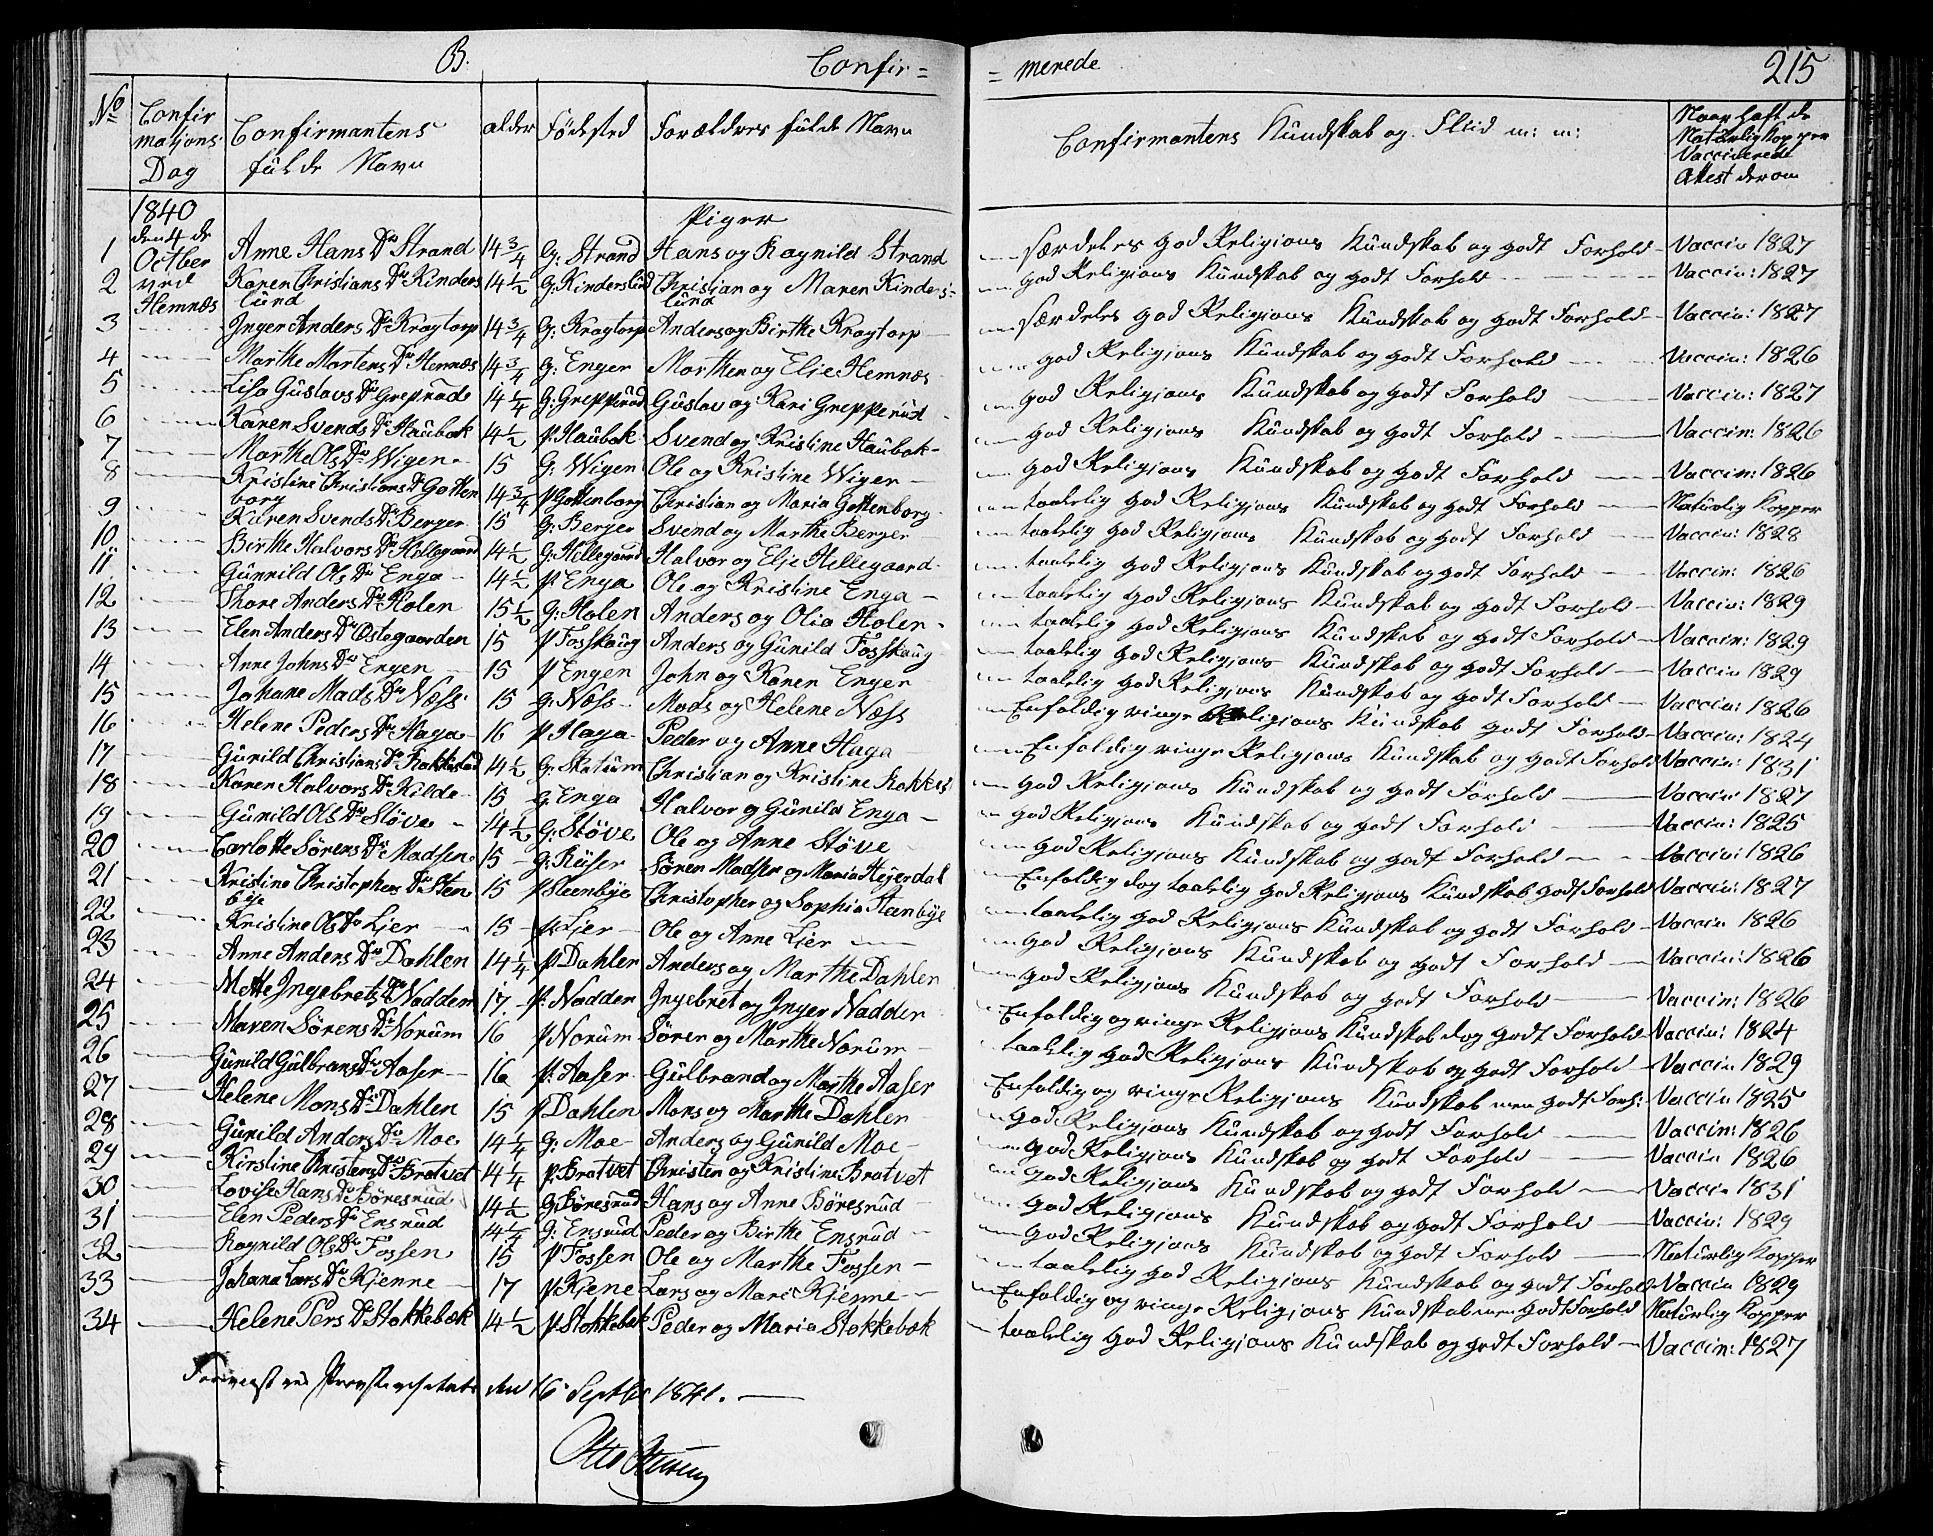 B. Confir= =merede 215
No Confirmations Dag Confirmantens fulde Navn alder Fødested Forældres fulde Navn Confirmantens Kundskab og Fliid m: m: Naar haft de Naturlig Kopper Vaccinerede Attest derom
1840 Piger
1 den 4de Anne Hans Dr Strand 14 3/4 G: Strand Hans og Ragnild Strand særdeles god Religions Kundskab og godt Forhold Vaccin 1827
2 Octber ved Hemnæs Karen Christians Dr Kinderslund 14 1/2 G: Kinderslund Christian og Maren Kinderslund god Religions Kundskab og godt Forhold Vaccin: 1827
3 Inger Anders Dr Krogtorp 14 3/4 G: Krogtorp Anders og Birthe Krogtorp særdeles god Religions Kundskab og godt Forhold Vaccin: 1827
4 Marthe Mortens Dr Hemnæs 14 3/4 G: Enger Morthen og Elie Hemnæs god Religions Kundskab og godt Forhold Vaccin: 1826
5 Lisa Gustavs Dr Greprøde 14 1/4 G: Grepperud Gustav og Kari Grepperud god Religions Kundskab og godt Forhold Vaccin: 1827
6 Karen Svends Dr Haubøk 14 1/2 P. Haubøk Svend og Kristine Haubøk god Religions Kundskab og godt Forhold Vaccin: 1826
7 Marthe Ols Dr Wigen 15 G: Wigen Ole og Kristine Wiger god Religions Kundskab og godt Forhold Vaccin: 1826
8 Kristine Christians Dr Gottenborg 14 3/4 P Gottenborg Christian og Maria Gottenborg taalelig god Religions Kundskab og godt Forhold Naturlig Kopper
9 Karen Svends Dr Berger 15 G: Berger Svend og Marthe Berger taalelig god Religions Kundskab og godt Forhold Vaccin: 1828
10 Birthe Halvors Dr Hellegaard 14 1/2 G: Hellegaard Halvor og Elje Hellegaard taalelig god Religions Kundskab og godt Forhold Vaccin: 1826
11 Gunnild Ols Dr Enga 14 1/2 P Enga Ole og Kristine Enga taalelig god Religions Kundskab og godt Forhold Vaccin: 1829
12 Thore Anders Dr Holen 15 1/2 G: Holen Anders og Olia Holen taalelig god Religions Kundskab og godt Forhold Vaccin: 1829
13 Elen Anders Dr Østegaarden 15 P Fosskaug Anders og Gunild Fosskaug taalelig god Religions Kundskab og godt Forhold Vaccin 1829
14 Anne Johns Dr Engen 15 P Engen John og Karen Enger taalelig god Religions Kundskab og godt Forhold Vaccin: 1826
15 Johane Mads Dr Næss 15 G: Næss Mads og Helene Næss Enfoldig ringe Religions Kundskab godt Forhold Vaccin: 1824
16 Helene Peders Dr Haga 16 P Haga Peder og Anne Haga Enfoldig ringe Religions Kundskab og godt Forhold Vaccin: 1831
17 Gunild Christians Dr Rakkestad 14 1/2 G: Skotum Christian og Kristine Rakkes god Religions Kundskab og godt Forhold Vaccin 1827
18 Karen Halvors Dr Kilde 15 G: Enga Halvor og Gunild Enga god Religions Kundskab og godt Forhold Vaccin: 1825
19 Gunild Ols Dr Støve 14 1/2 G: Støve Ole og Anne Støve god Religions Kundskab og godt Forhold Vaccin: 1826
20 Carlotte Sørens Dr Madsen 15 G: Kuser Søren Madsen og Maria Hejerdal Enfoldig dog taalelig god Religions Kundskab godt Forhold Vaccin: 1827
21 Kristine Christophers Dr Stenbye 15 P Steenbye Christopher og Sophia Steenbye taalelig god Religions Kundskab og godt Forhold Vaccin 1826
22 Kristine Ols Dr Lier 15 P Lier Ole og Anne Lier god Religions Kundskab og godt Forhold Vaccin: 1826
23 Anne Anders Dr Dahlen 14 1/4 P Dahlen Anders og Marthe Dahlen god Religions Kundskab og godt Forhold Vaccin: 1826
24 Mette Ingebrets Dr Naddem 17 P. Nadder Ingebret og Inger Nadder Enfoldig og ringe Religions Kundskab dog godt Forhold Vaccin: 1824
25 Maren Sørens Dr Norum 16 P Norum Søren og Marthe Norum taalelig god Religions Kundskab og godt Forhold Vaccin 1829
26 Gunild Gulbrans Dr Aaser 16 P. Aaser Gulbrand og Marthe Aaser Enfoldig og ringe Religions Kundskab men godt Forh: Vaccin 1825
27 Helene Mons Dr Dahlen 15 P Dahlen Mons og Marthe Dahlen god Religions Kundskab og godt Forhold Vaccin: 1826
28 Gunild Anders Dr Moe 14 1/4 G: Moe Anders og Gunild Moe god Religions Kundskab og godt Forhold Vaccin 1826
29 Kirstine Christens Dr Bratvet 14 1/4 P. Bratvet Christen og Kristine Bratvet god Religions Kundskab og godt Forhold Vaccin 1831
30 Lovise Hans Dr Børesrud 14 1/2 G Børesrud Hans og Anne Børesrud god Religions Kundskab og godt Forhold Vaccin: 1829
31 Elen Peders Dr Ensrud 14 1/4 G: Ensrud Peder og Birthe Ensrud god Religions Kundskab og godt Forhold Naturlig Kopper
32 Ragnild Ols Dr Fossen 15 P Fossen Ole og Marthe Fossen taalelig god Religions Kundskab og godt Forhold Vaccin 1829
33 Johana Lars Dr Kjenne 17 P Kjene Lars og Mari Kjenne Enfoldig og ringe Religions Kundskab men godt Forhold Naturlig Kopper
34 Helene Pers Dr Stokkebæk 14 1/2 P. Stokkebæk Peder og Maria Stokkebæk taalelig god Religions Kundskab og godt Forhold Vaccin: 1827
Foreviist ved Provstevisitats den 16 Septbr 1841.